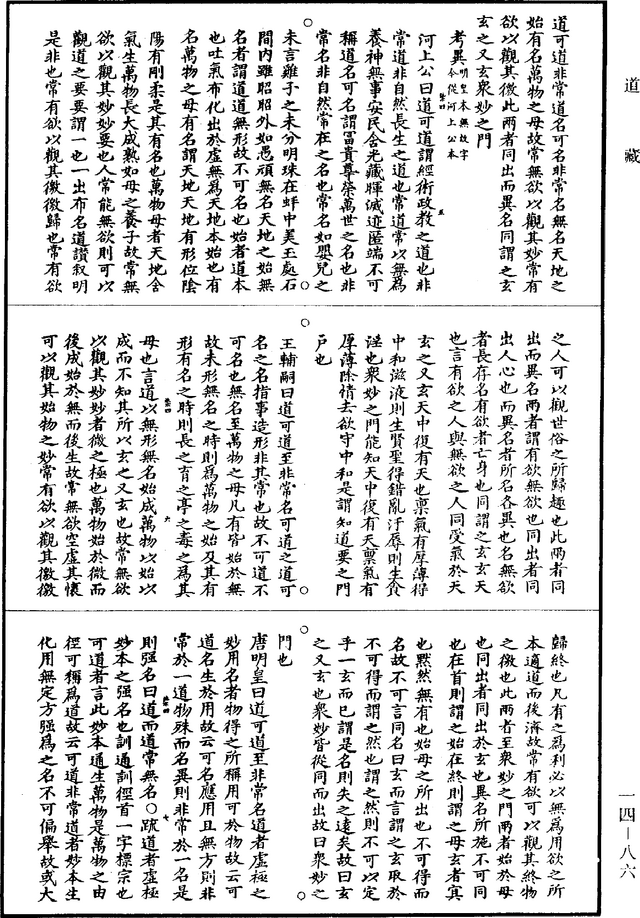 道藏
道可道非常道名可名非常名無名天地之
始有名萬物之母故常無欲以觀其妙常有
欲以觀其徼此兩者同出而異名同謂之玄
玄之又玄衆妙之門
考異明皇本無故字今從河上公本
河上公曰道可道謂經術政教之道也非
常道非自然長生之道也常道常以無爲
養神無事安民含光藏暉滅迹匿端不可
稱道名可名謂富貴尊榮萬世之名也非
常名非自然常在之名也常名如嬰兒之
未言雞子之未分明珠在蚌中美玉處石
間內雖昭昭外如愚頑無名天地之始無
名者謂道道無形故不可名也始者道本
也吐氣布化出於虛無爲天地本始也有
名萬物之母有名謂天地天地有形位陰
陽有剛柔是其有名也萬物母者天地含
氣生萬物長大成熟如母之養子故常無
欲以觀其妙妙要也人常能無欲則可以
觀道之要要謂一也一出布名道讚叙明
是非也常有欲以觀其徼徼歸也常有欲
之人可以觀世俗之所歸趣也此兩者同
出而異名兩者謂有欲無欲也同出者同
出人心也而異名者所名各異也名無欲
者長存名有欲者亡身也同謂之玄玄天
也言有欲之人與無欲之人同受氣於天
玄之又玄天中復有天也禀氣有厚薄得
中和滋液則生賢聖得錯亂汙辱則生貪
淫也衆妙之門能知天中復有天禀氣有
厚薄除情去欲守中和是謂知道要之門
戶也
王輔嗣曰道可道至非常名可道之道可
名之名指事造形非其常也故不可道不
可名也無名至萬物之母凡有皆始於無
故未形無名之時則爲萬物之始及其有
形有名之時則長之育之亭之毒之爲其
母也言道以無形無名始成萬物以始以
成而不知其所以玄之又玄也故常無欲
以觀其妙妙者微之極也萬物始於微而
後成始於無而後生故常無欲空虛其懷
可以觀其始物之妙常有欲以觀其徼徼
歸終也凡有之爲利必以無爲用欲之所
本適道而後濟故常有欲可以觀其終物
之徼也此兩者至衆妙之門兩者始於母
也同出者同出於玄也異名所施不可同
也在首則謂之始在終則謂之母玄者冥
也黙然無有也始母之所出也不可得而
名故不可言同名曰玄而言謂之玄取於
不可得而謂之然也謂之然則不可以定
乎一玄而已謂是名則失之遠矣故曰玄
之又玄也衆妙皆從同而出故曰衆妙之
門也
唐明皇曰道可道至非常名道者虛極之
妙用名者物得之所稱用可於物故云可
道名生於用故云可名應用且無方則非
常於一道物殊而名異則非常於一名是
則强名曰道而道常無名○䟽道者虛極
妙本之强名也訓通訓徑首一字標宗也
可道者言此妙本通生萬物是萬物之由
徑可稱爲道故云可道非常道者妙本生
化用無定方强爲之名不可偏舉故或大
一四—八六